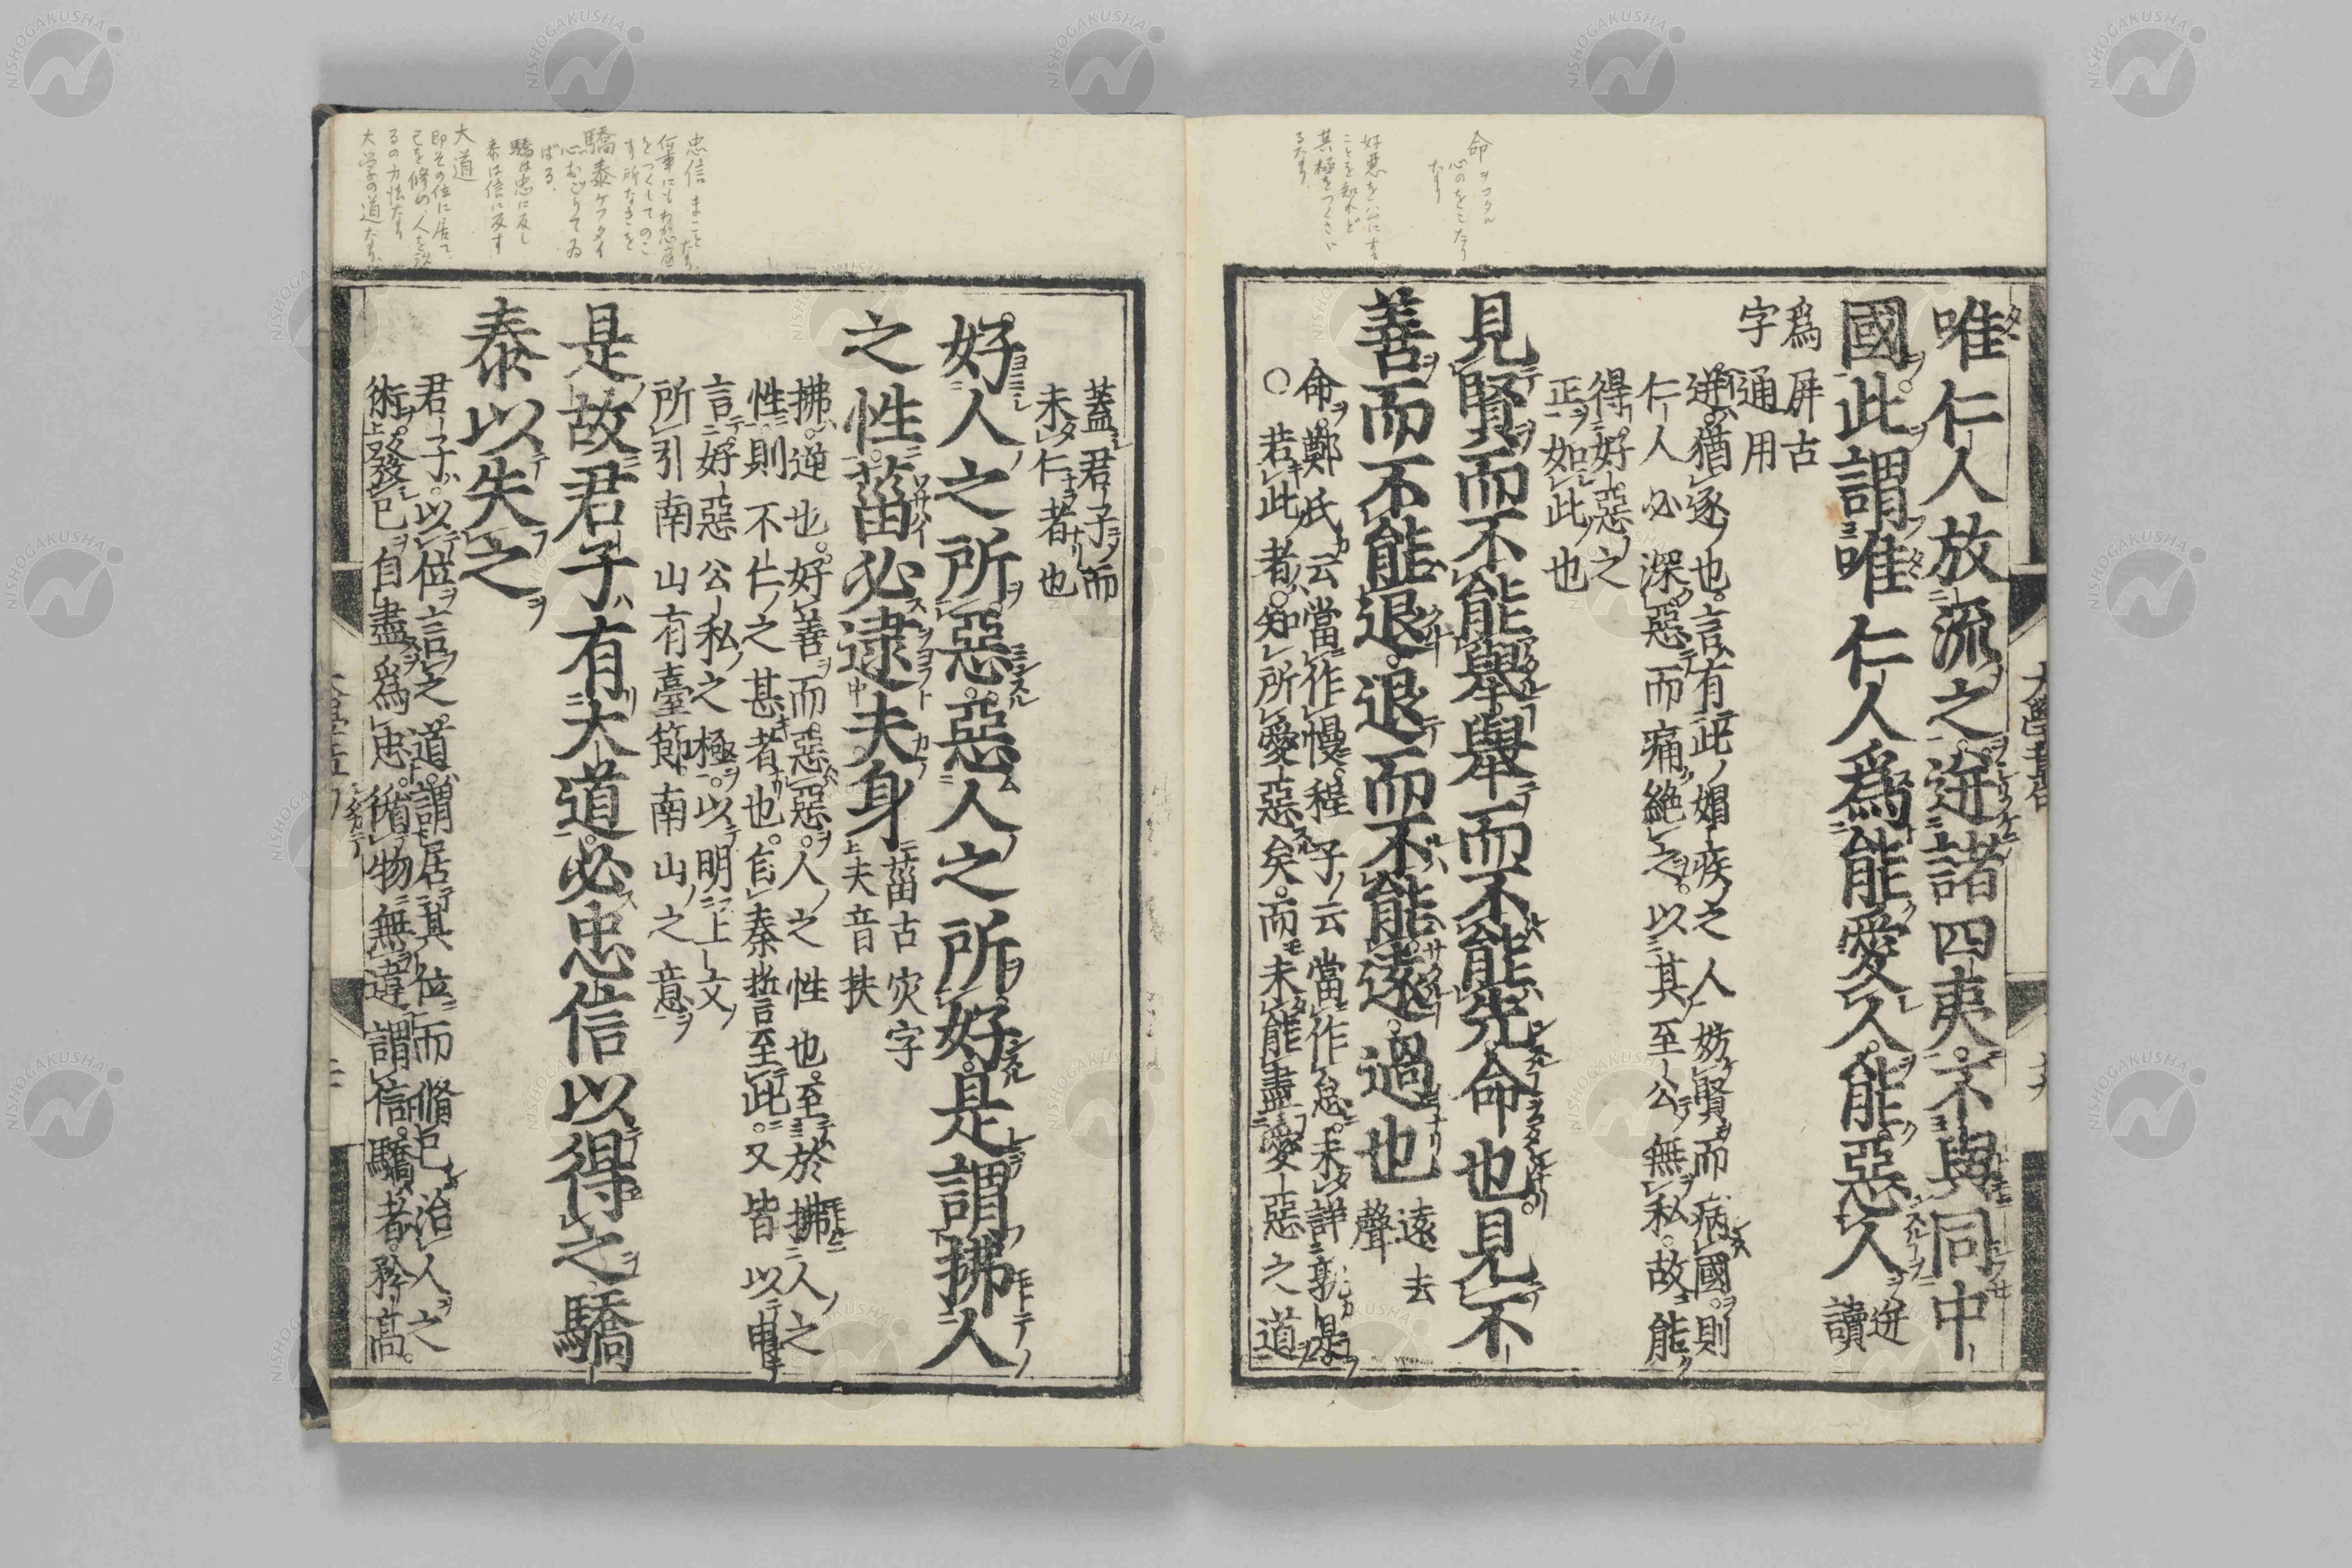 唯仁人放流之迸諸四夷不與同中
國此謂唯仁人爲能愛人能惡人
迸
讀
爲屏古
字通用
迸猶逐也言有此媢疾之人妨賢而病國則
仁人必深惡而痛絶之以其至公無私故能
得好惡之
正如此也
見賢而不能擧擧而不能先命也見不
善而不能退退而不能遠過也
遠去
聲
命鄭氏云當作慢程子云當作怠未詳孰是
○若此者知所愛惡矣而未能盡愛惡之道
蓋君子而
未仁者也
好人之所惡惡人之所好是謂拂人
之性菑必逮夫身
菑古災字
夫音扶
拂逆也好善而惡惡人之性也至於拂人之
性則不仁之甚者也自秦誓至此又皆以申
言好惡公私之極以明上文
所引南山有臺節南山之意
是故君子有大道必忠信以得之驕
泰以失之
君子以位言之道謂居其位而脩已治人之
術發已自盡爲忠循物無違謂信驕者矜高
命
心のをこたり
なり
好惡を公にす
ことを知れど
其極をつくさゞ
るなり
忠信 まことなり
驕泰 ケウタイ
心おごりてゐ
ばる
驕は忠に反し
泰は信に反す
大道
即その位に居て
るの方法なり
大学の道なり
NISHOGAKUSHA